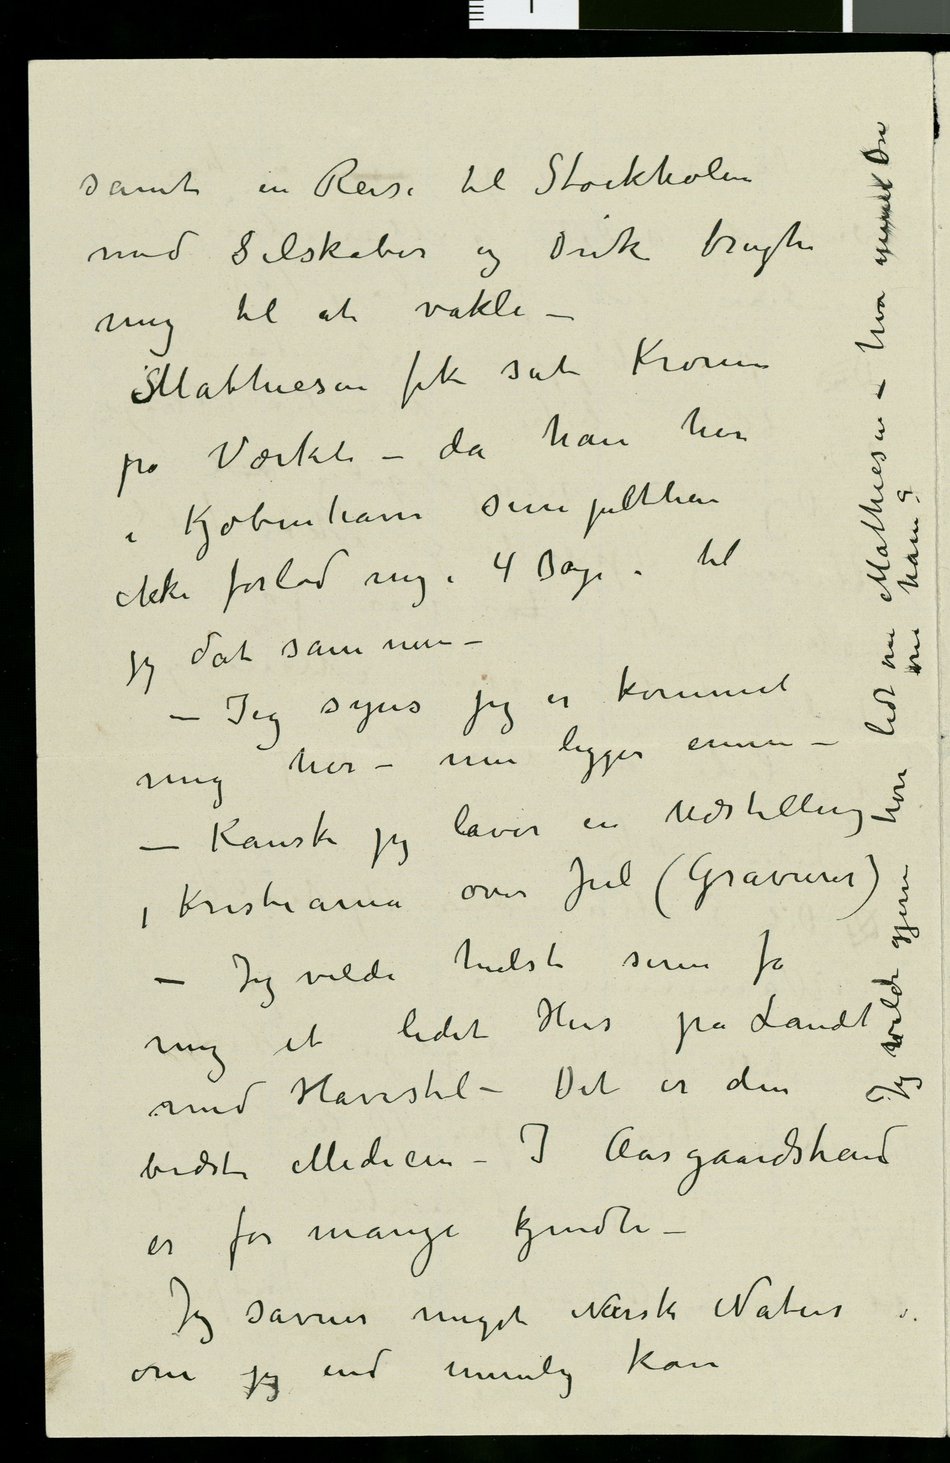 samt en Reise til Stockholm
med Selskaber og Drik bragte
mig til at vakle –
Matthiesen fik sat Kronen
på Værket – da han her
i Kjøbenhavn simpelthen
ikke forlod mig i 4 Dage – til
jeg dat sammen –
– Jeg synes jeg er kommet
mig her – men ligger ennu –
– Kanske jeg laver en Udstilling
i Kristiania over Jul (Gravurer)
– Jeg vilde helst siden få
mig et lidet Hus på Landet
med Havestel – Det er den
bedste Medicin – I Aasgaardstrand
er for mange kjendte –
Jeg savner meget Norsk Natur
om jeg end nemlig kan
Jeg vilde gjerne høre lidt om Mathiesen – hva Du
om ham?